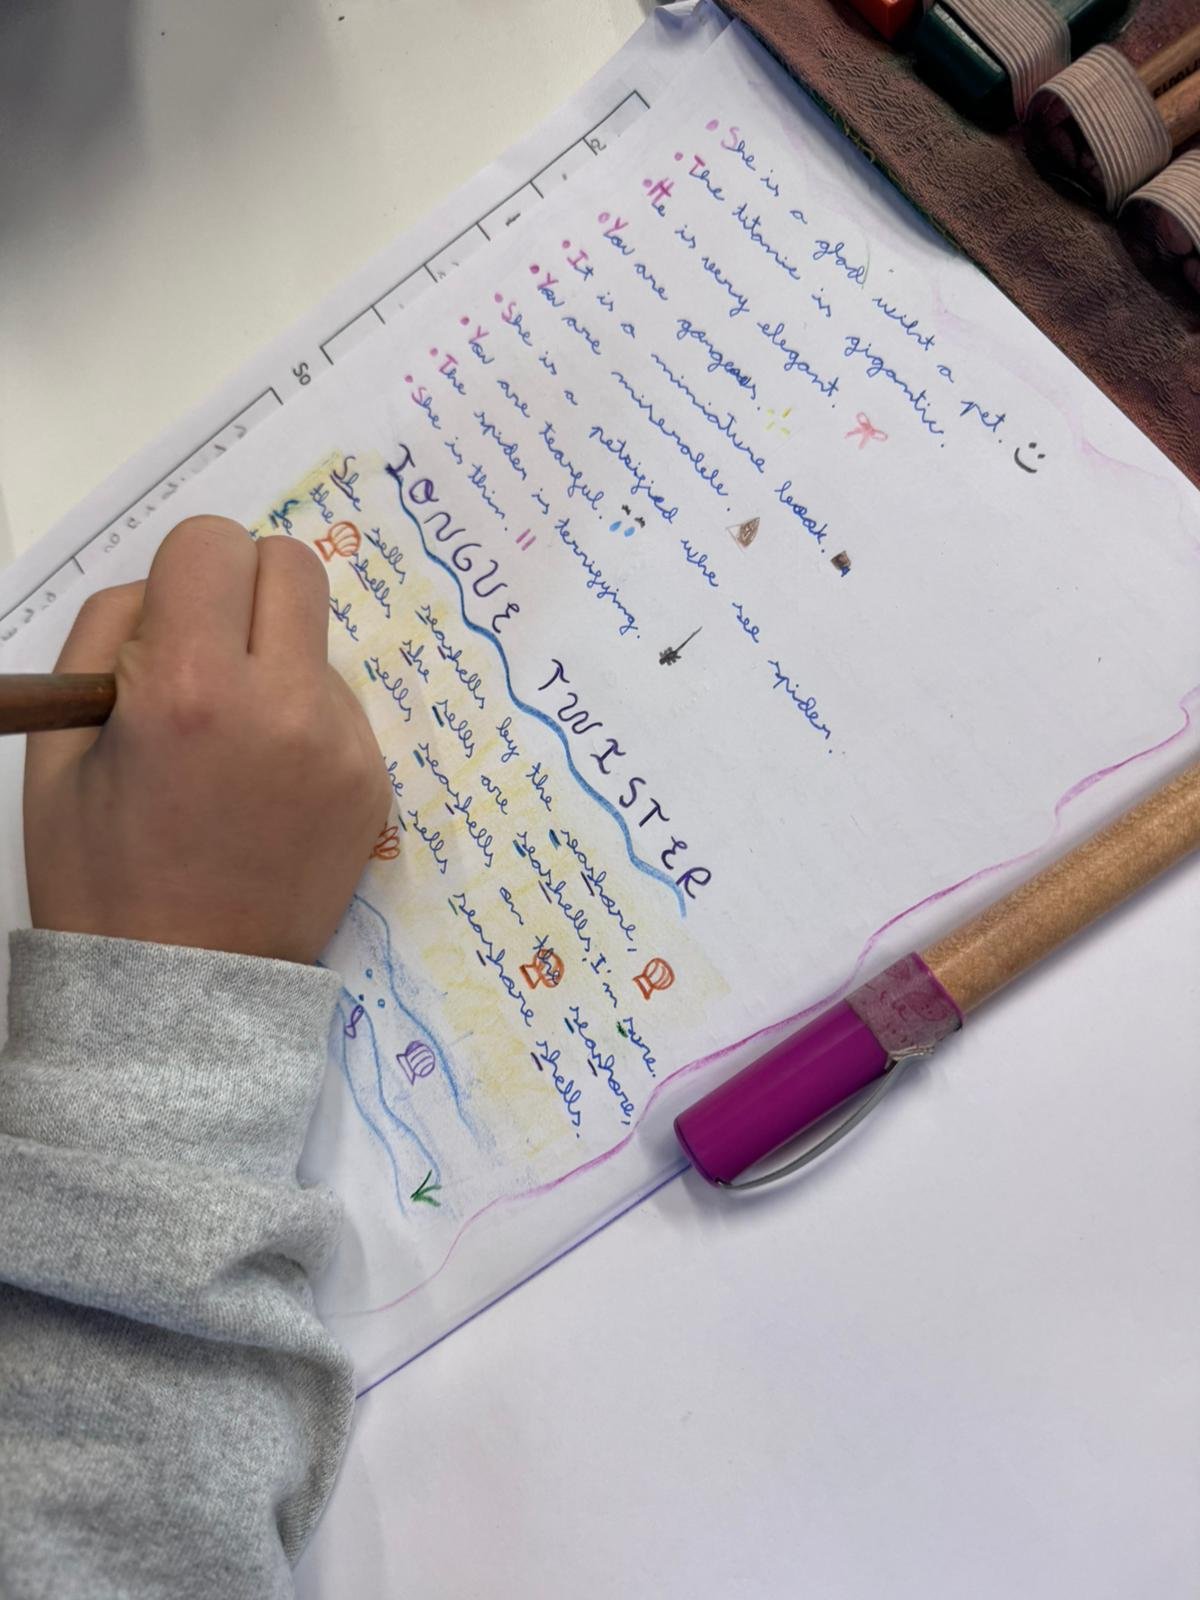 • She is a glad wiht a pet.
• The titanic is gigantic.
• He is very elegant.
• You are gorgeous.
• It is a miniature book.
• You are miserable.
• She is a petrified who see spider.
• You are tearful.
• The spider is terrifying.
• She is thin.
TONGUE TWISTER
She sells seashells by the seashore,
the shells she sells are seashells, I'm sure.
So she sells seashells on the seashore,
she sells seashore shells.
50